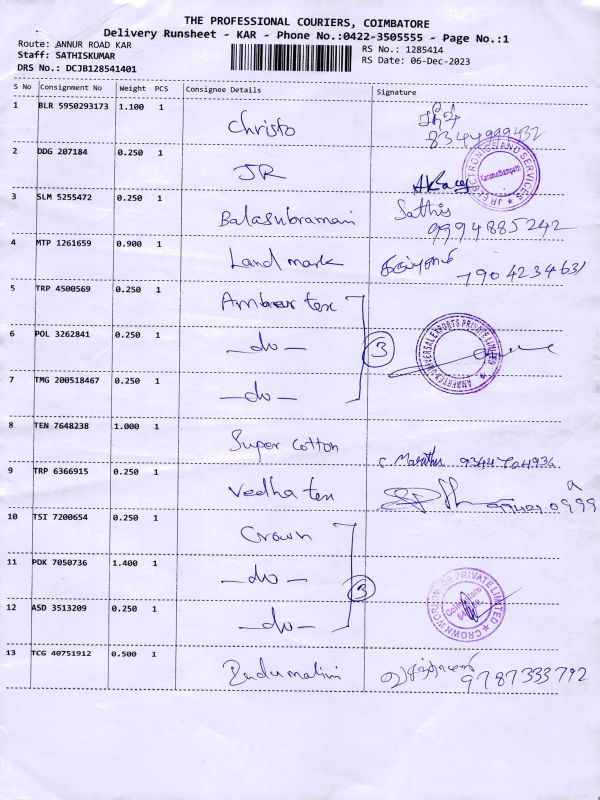 THE PROFESSIONAL COURIERS, COIMBATORE
Delivery Runsheet - KAR - Phone No.:0422-3505555 - Page No.:1
Route: ANNUR ROAD KAR
Staff: SATHISKUMAR
DRS No.: DCJB128541401
RS No.: 1285414
RS Date: 06-Dec-2023
S No Consignment No Weight PCS Consignee Details Signature
1 BLR 5950293173 1.100 1 Christo
8344999432
2 DDG 207184 0.250 1 JR
JR ELECTRONICS AND SERVICES
Karumathampatti
3 SLM 5255472 0.250 1 Balasubramani Sathis
9994885242
4 MTP 1261659 0.900 1 Land mark
7904234631
5 TRP 4500569 0.250 1 tex
6 POL 3262841 0.250 1 -do- 3
UNIVERSAL EXPORTS PRIVATE LIMITED
7 TMG 200518467 0.250 1 -do-
8 TEN 7648238 1.000 1 Super Cotton
9 TRP 6366915 0.250 1 Vedha tex
10 TSI 7200654 0.250 1 Crown
11 PDK 7050736 1.400 1 -do- 3
CROWN WORLDWIDE PRIVATE LIMITED
Coimbatore
12 ASD 3513209 0.250 1 -do-
13 TCG 40751912 0.500 1
9787333792